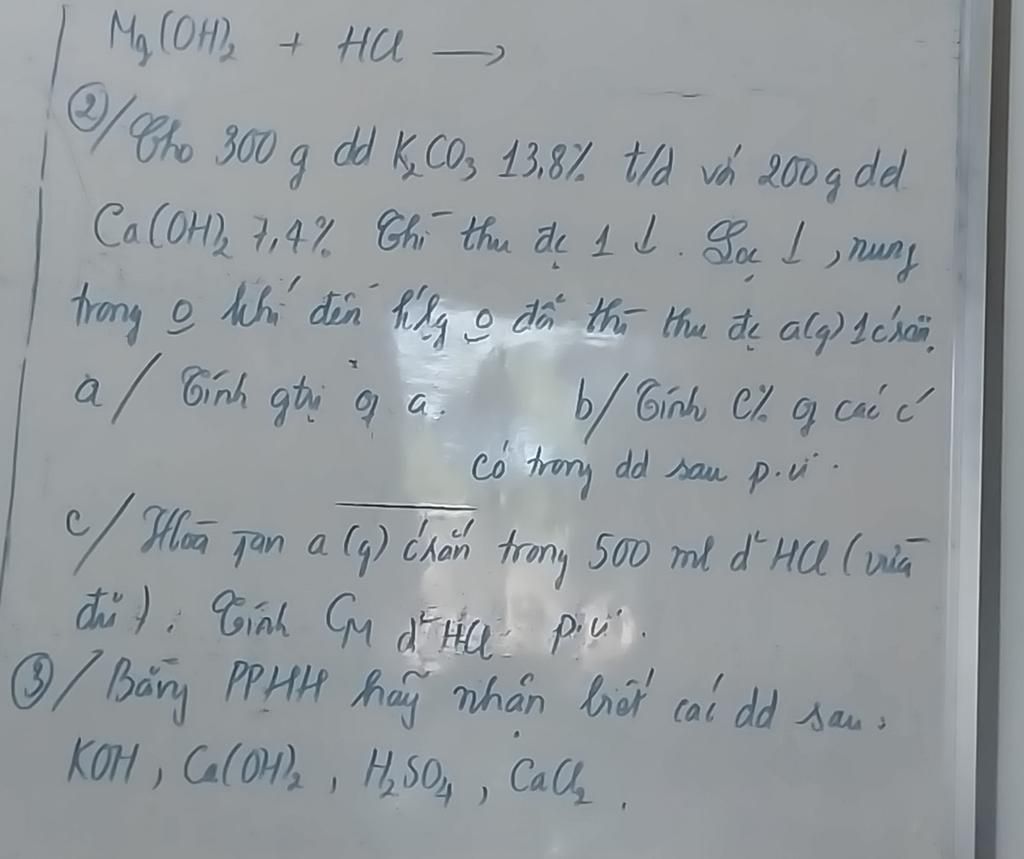 Mg(OH)₂ + HCl →
②/ Cho 300 g dd K₂CO₃ 13,8% t/d với 200 g dd
Ca(OH)₂ 7,4% Thì thu đc 1 ↓. Lọc ↓, nung
trong o khí đến k'lg o đổi thì thu đc a(g) 1 c'rắn.
a/ Tính gtrị a. b/ Tính C% các c'
có trong dd sau p.ư.
c/ Hoà tan a(g) c'rắn trong 500 ml d² HCl (vừa
đủ). Tính CM d² HCl p.ư.
③/ Bằng PPHH hãy nhận biết các dd sau:
KOH, Ca(OH)₂, H₂SO₄, CaCl₂.